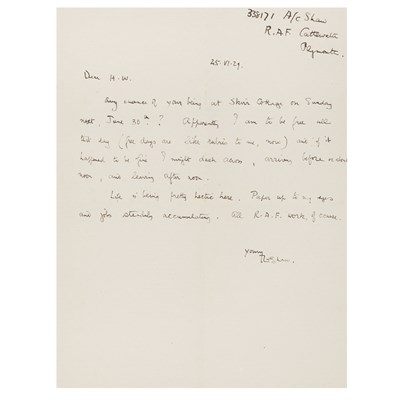 338171 A/c Shaw
R.A.F. Cattewater
Plymouth.
25.VI.29.
Dear H.W.
Any chance of your being at Skerr Cottage on Sunday
next, June 30th? Apparently I am to be free all
that day (free days are like rubies to me, now) and if it
happened to be fine I might dash across, arriving before or about
noon, and leaving after noon.
Life is being pretty hectic here. Papers up to my eyes
and jobs steadily accumulating. All R.A.F. work of course.
yours
TEShaw.